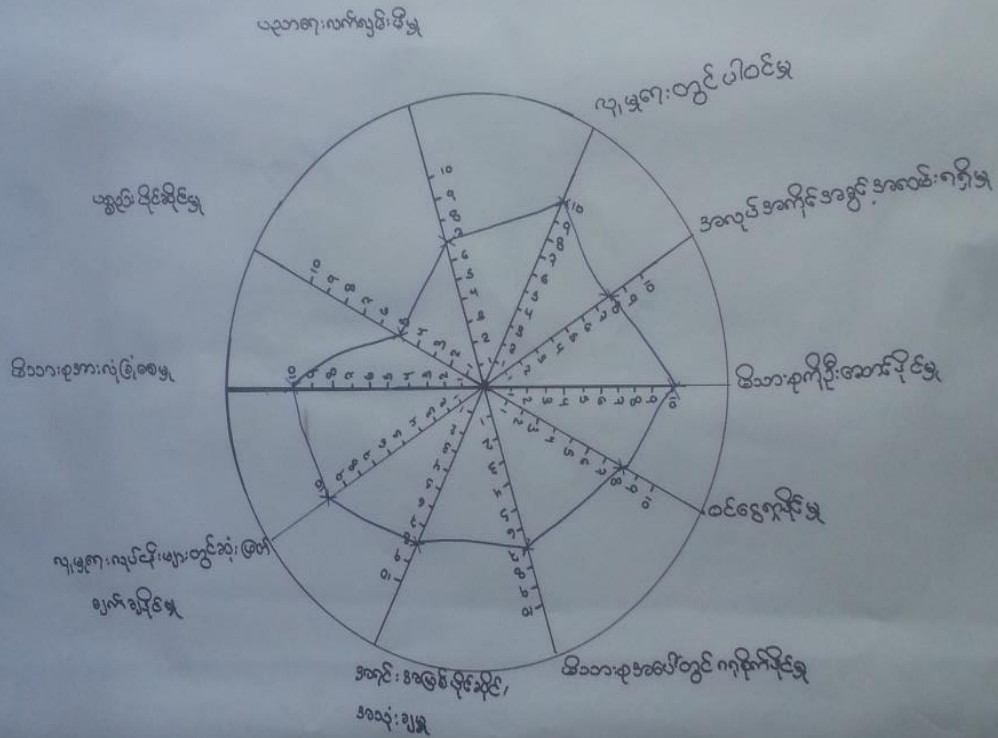 ပညာရေးလက်လှမ်းမီမှု
လူမှုရေးတွင်ပါဝင်မှု
အလုပ်အကိုင်အခွင့်အလမ်းရရှိမှု
မိသားစုကိုဦးဆောင်နိုင်မှု
ဝင်ငွေရှာနိုင်မှု
မိသားစုအပေါ်တွင် ဂရုစိုက်နိုင်မှု
အရင်းအမြစ်ပိုင်ဆိုင်/
အသုံးချမှု
လူမှုရေးလုပ်ငန်းများတွင်ဆုံးဖြတ်
ချက်ချနိုင်မှု
မိသားစုအားလုံခြုံစေမှု
ပစ္စည်းပိုင်ဆိုင်မှု